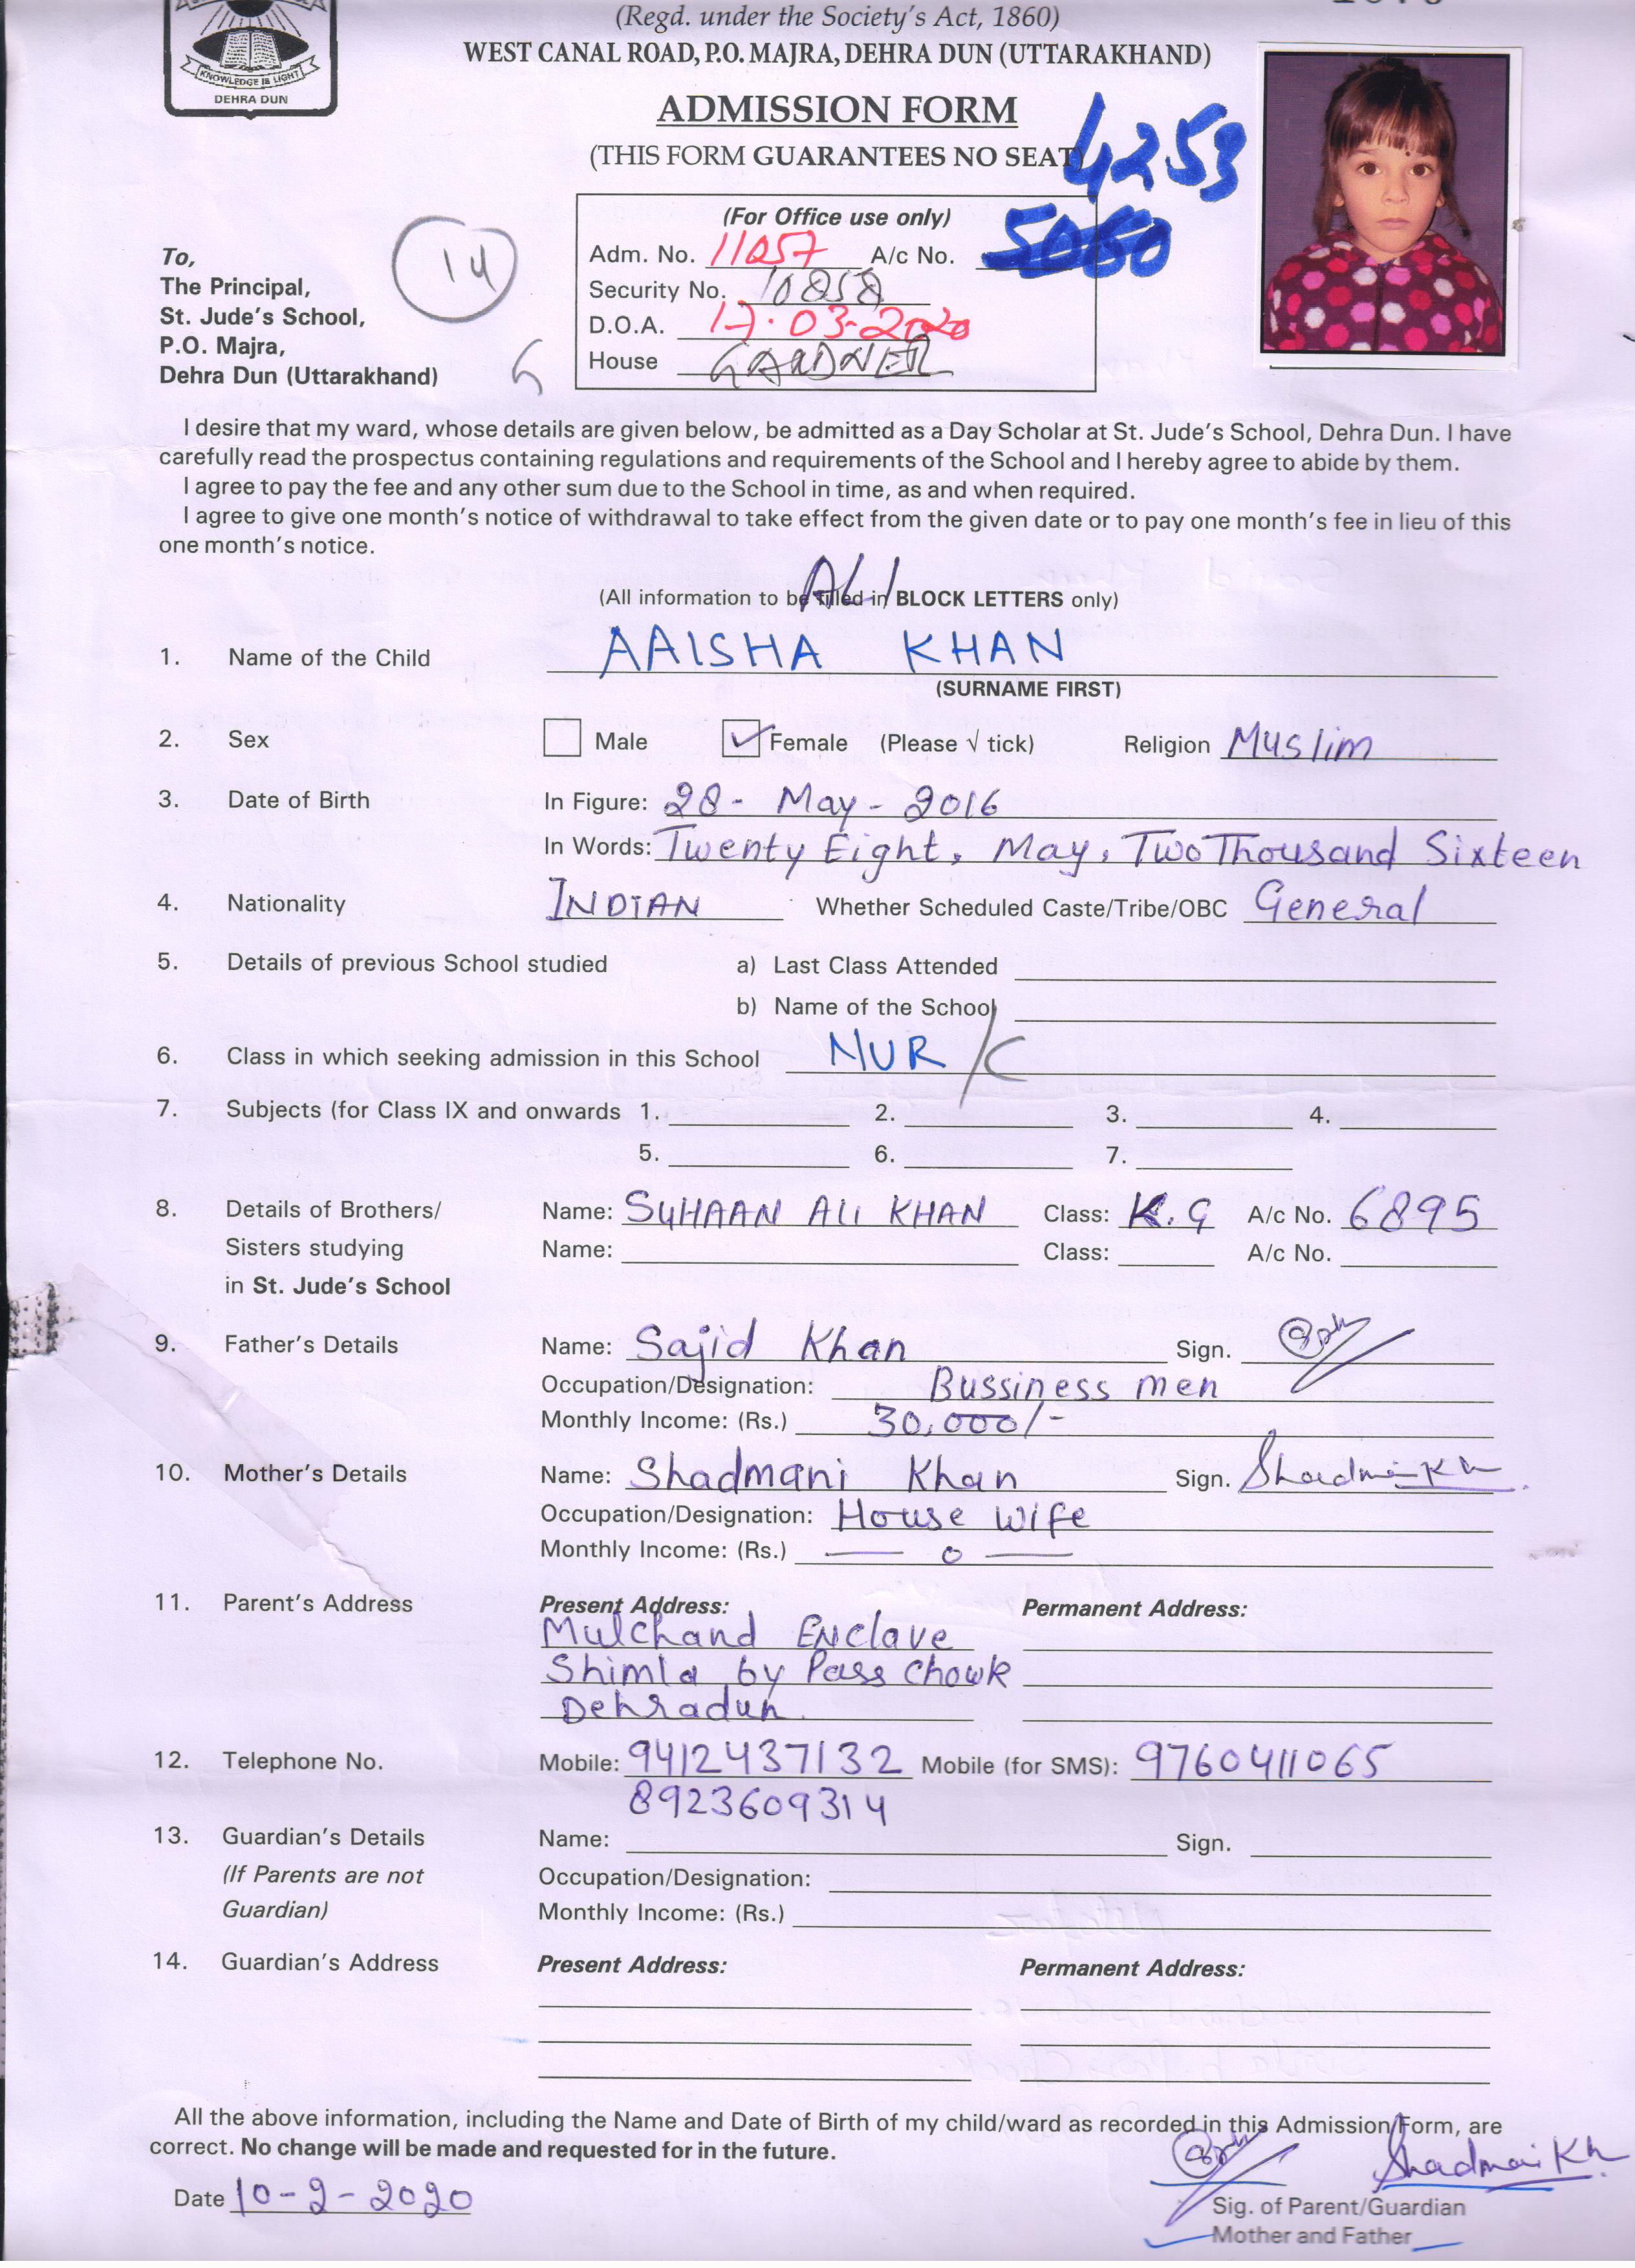 (Regd. under the Society's Act, 1860)
WEST CANAL ROAD, P.O. MAJRA, DEHRA DUN (UTTARAKHAND)
KNOWLEDGE IS LIGHT
DEHRA DUN
ADMISSION FORM
(THIS FORM GUARANTEES NO SEAT)
4253
(For Office use only)
Adm. No. 11057 A/c No. 5060
Security No. 10858
D.O.A. 17.03-2020
House GARDNER
14
G
To,
The Principal,
St. Jude's School,
P.O. Majra,
Dehra Dun (Uttarakhand)
I desire that my ward, whose details are given below, be admitted as a Day Scholar at St. Jude's School, Dehra Dun. I have
carefully read the prospectus containing regulations and requirements of the School and I hereby agree to abide by them.
I agree to pay the fee and any other sum due to the School in time, as and when required.
I agree to give one month's notice of withdrawal to take effect from the given date or to pay one month's fee in lieu of this
one month's notice.
(All information to be filled in BLOCK LETTERS only)
ALI
1. Name of the Child AAISHA KHAN
(SURNAME FIRST)
2. Sex Male ✓ Female (Please √ tick) Religion Muslim
3. Date of Birth In Figure: 28- May - 2016
In Words: Twenty Eight, May, Two Thousand Sixteen
4. Nationality INDIAN Whether Scheduled Caste/Tribe/OBC General
5. Details of previous School studied a) Last Class Attended
b) Name of the School
6. Class in which seeking admission in this School NUR/C
7. Subjects (for Class IX and onwards 1. 2. 3. 4.
5. 6. 7.
8. Details of Brothers/ Name: SUHAAN ALI KHAN Class: K.G A/c No. 6895
Sisters studying Name: Class: A/c No.
in St. Jude's School
9. Father's Details Name: Sajid Khan Sign.
Occupation/Designation: Bussiness men
Monthly Income: (Rs.) 30,000/-
10. Mother's Details Name: Shadmani Khan Sign. Shadmani Kh
Occupation/Designation: House Wife
Monthly Income: (Rs.) — 0 —
11. Parent's Address Present Address: Permanent Address:
Mulchand Enclave
Shimla by Pass Chowk
Dehradun.
12. Telephone No. Mobile: 9412437132 Mobile (for SMS): 9760411065
8923609314
13. Guardian's Details Name: Sign.
(If Parents are not Occupation/Designation:
Guardian) Monthly Income: (Rs.)
14. Guardian's Address Present Address: Permanent Address:
All the above information, including the Name and Date of Birth of my child/ward as recorded in this Admission Form, are
correct. No change will be made and requested for in the future.
Shadmani Kh
Date 10-2-2020
Sig. of Parent/Guardian
Mother and Father